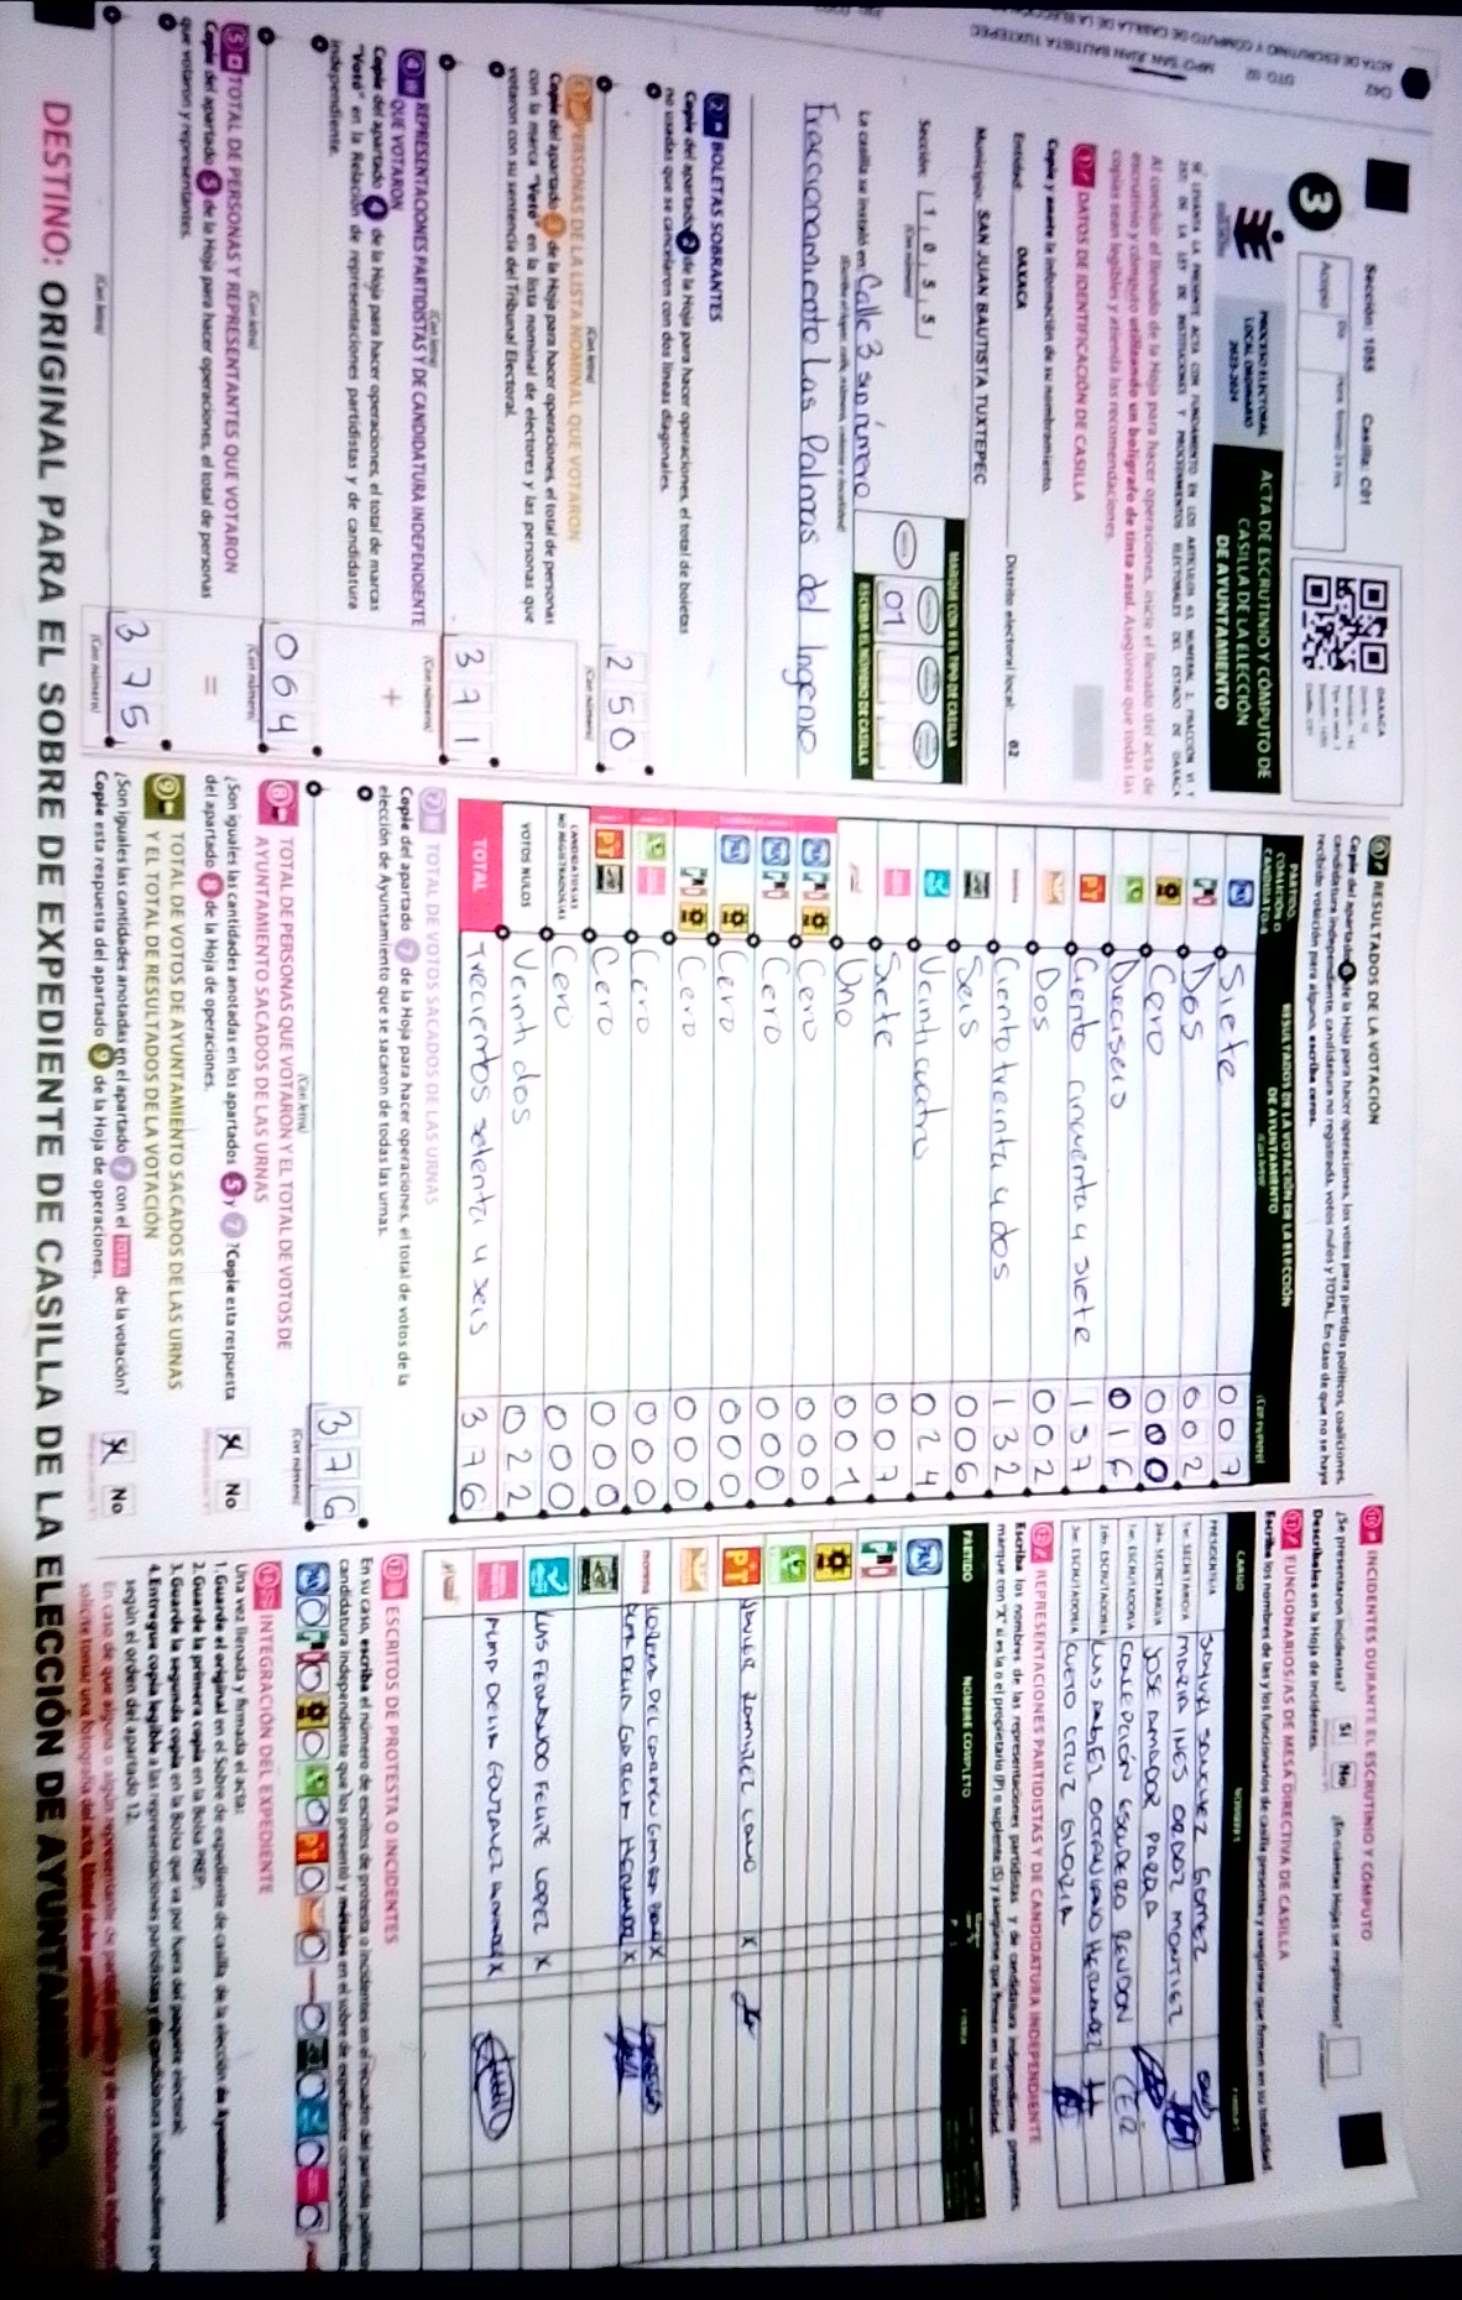 042
DTO: 02 MPO: SAN JUAN BAUTISTA TUXTEPEC
Sección: 1055 Casilla: C01
3
Acopio
OAXACA
PROCESO ELECTORAL
LOCAL ORDINARIO
2023-2024
ACTA DE ESCRUTINIO Y CÓMPUTO DE
CASILLA DE LA ELECCIÓN
DE AYUNTAMIENTO
Al concluir el llenado de la Hoja para hacer operaciones, inicie el llenado del acta de
escrutinio y cómputo utilizando un bolígrafo de tinta azul. Asegúrese que todas las
copias sean legibles y atienda las recomendaciones.
1 DATOS DE IDENTIFICACIÓN DE CASILLA
Copie y anote la información de su nombramiento.
Entidad: OAXACA Distrito electoral local: 02
Municipio: SAN JUAN BAUTISTA TUXTEPEC
Sección: 1 0 5 5
(Con número)
MARQUE CON X EL TIPO DE CASILLA
01
ESCRIBA EL NÚMERO DE CASILLA
La casilla se instaló en: Calle 3 sin número
Fraccionamiento Las Palmas del Ingenio
2 BOLETAS SOBRANTES
Copie del apartado 2 de la Hoja para hacer operaciones, el total de boletas
no usadas que se cancelaron con dos líneas diagonales.
250
(Con letra) (Con número)
3 PERSONAS DE LA LISTA NOMINAL QUE VOTARON
Copie del apartado 3 de la Hoja para hacer operaciones, el total de personas
con la marca "Votó" en la lista nominal de electores y las personas que
votaron con su sentencia del Tribunal Electoral.
371
(Con letra) (Con número)
4 REPRESENTACIONES PARTIDISTAS Y DE CANDIDATURA INDEPENDIENTE
QUE VOTARON
+
Copie del apartado 4 de la Hoja para hacer operaciones, el total de marcas
"Votó" en la Relación de representaciones partidistas y de candidatura
independiente.
064
(Con letra) (Con número)
5 TOTAL DE PERSONAS Y REPRESENTANTES QUE VOTARON
=
Copie del apartado 5 de la Hoja para hacer operaciones, el total de personas
que votaron y representantes.
375
(Con letra) (Con número)
6 RESULTADOS DE LA VOTACIÓN
Copie del apartado 6 de la Hoja para hacer operaciones, los votos para partidos políticos, coaliciones,
candidatura independiente, candidatura no registrada, votos nulos y TOTAL. En caso de que no se haya
recibido votación para alguno, escriba ceros.
PARTIDO,
COALICIÓN O
CANDIDATO/A
RESULTADOS DE LA VOTACIÓN DE LA ELECCIÓN
DE AYUNTAMIENTO
(Con letra) (Con número)
PAN Siete 007
PRI Dos 002
Cero 000
Dieciseis 016
PT Ciento cincuenta y siete 157
Dos 002
Ciento treinta y dos 132
Seis 006
Veinticuatro 024
Siete 007
Uno 001
Cero 000
Cero 000
Cero 000
Cero 000
Cero 000
PT Cero 000
CANDIDATOS/AS
NO REGISTRADOS/AS Cero 000
VOTOS NULOS Veintidos 022
TOTAL Trecientos setenta y seis 376
7 TOTAL DE VOTOS SACADOS DE LAS URNAS
Copie del apartado 7 de la Hoja para hacer operaciones, el total de votos de la
elección de Ayuntamiento que se sacaron de todas las urnas.
376
(Con letra) (Con número)
8 TOTAL DE PERSONAS QUE VOTARON Y EL TOTAL DE VOTOS DE
AYUNTAMIENTO SACADOS DE LAS URNAS
¿Son iguales las cantidades anotadas en los apartados 5 y 7? Copie esta respuesta
del apartado 8 de la Hoja de operaciones.
Sí No
9 TOTAL DE VOTOS DE AYUNTAMIENTO SACADOS DE LAS URNAS
Y EL TOTAL DE RESULTADOS DE LA VOTACIÓN
¿Son iguales las cantidades anotadas en el apartado 7 con el TOTAL de la votación?
Copie esta respuesta del apartado 9 de la Hoja de operaciones.
Sí No
10 INCIDENTES DURANTE EL ESCRUTINIO Y CÓMPUTO
¿Se presentaron incidentes? Sí No ¿En cuántas Hojas se registraron?
Descríbalos en la Hoja de incidentes.
11 FUNCIONARIOS/AS DE MESA DIRECTIVA DE CASILLA
Escriba los nombres de las y los funcionarios de casilla presentes y asegúrese que firmen en su totalidad.
CARGO NOMBRES FIRMAS
PRESIDENTE/A SANCHEZ GOMEZ
1er. SECRETARIO/A MARIA INES ORDOZ MONTIEL
2do. SECRETARIO/A JOSE AMADOR PARADA
1er. ESCRUTADOR/A CONCEPCIÓN ESCUDERO RENDON CER
2do. ESCRUTADOR/A LUIS OCTAVIANO HERNANDEZ
3er. ESCRUTADOR/A CUETO CRUZ GLORIA
12 REPRESENTACIONES PARTIDISTAS Y DE CANDIDATURA INDEPENDIENTE
Escriba los nombres de las representaciones partidistas y de candidatura independiente presentes,
marque con "X" si es la o el propietario (P) o suplente (S) y asegúrese que firmen en su totalidad.
PARTIDO NOMBRE COMPLETO P S FIRMA
PAN
PRI
PT JAVIER RAMIREZ CANO X
morena LORENA DEL CARMEN X
ALMA DELIA GARCIA HERNANDEZ X
LUIS FERNANDO FELIPE LOPEZ X
ALMA DELIA GONZALEZ X
13 ESCRITOS DE PROTESTA O INCIDENTES
En su caso, escriba el número de escritos de protesta o incidentes en el recuadro del partido político
candidatura independiente que los presentó y métalos en el sobre de expediente correspondiente.
14 INTEGRACIÓN DEL EXPEDIENTE
Una vez llenada y firmada el acta:
1. Guarde el original en el Sobre de expediente de casilla de la elección de Ayuntamiento.
2. Guarde la primera copia en la Bolsa PREP.
3. Guarde la segunda copia en la Bolsa que va por fuera del paquete electoral.
4. Entregue copia legible a las representaciones partidistas y de candidatura independiente
según el orden del apartado 12.
DESTINO: ORIGINAL PARA EL SOBRE DE EXPEDIENTE DE CASILLA DE LA ELECCIÓN DE AYUNTAMIENTO.